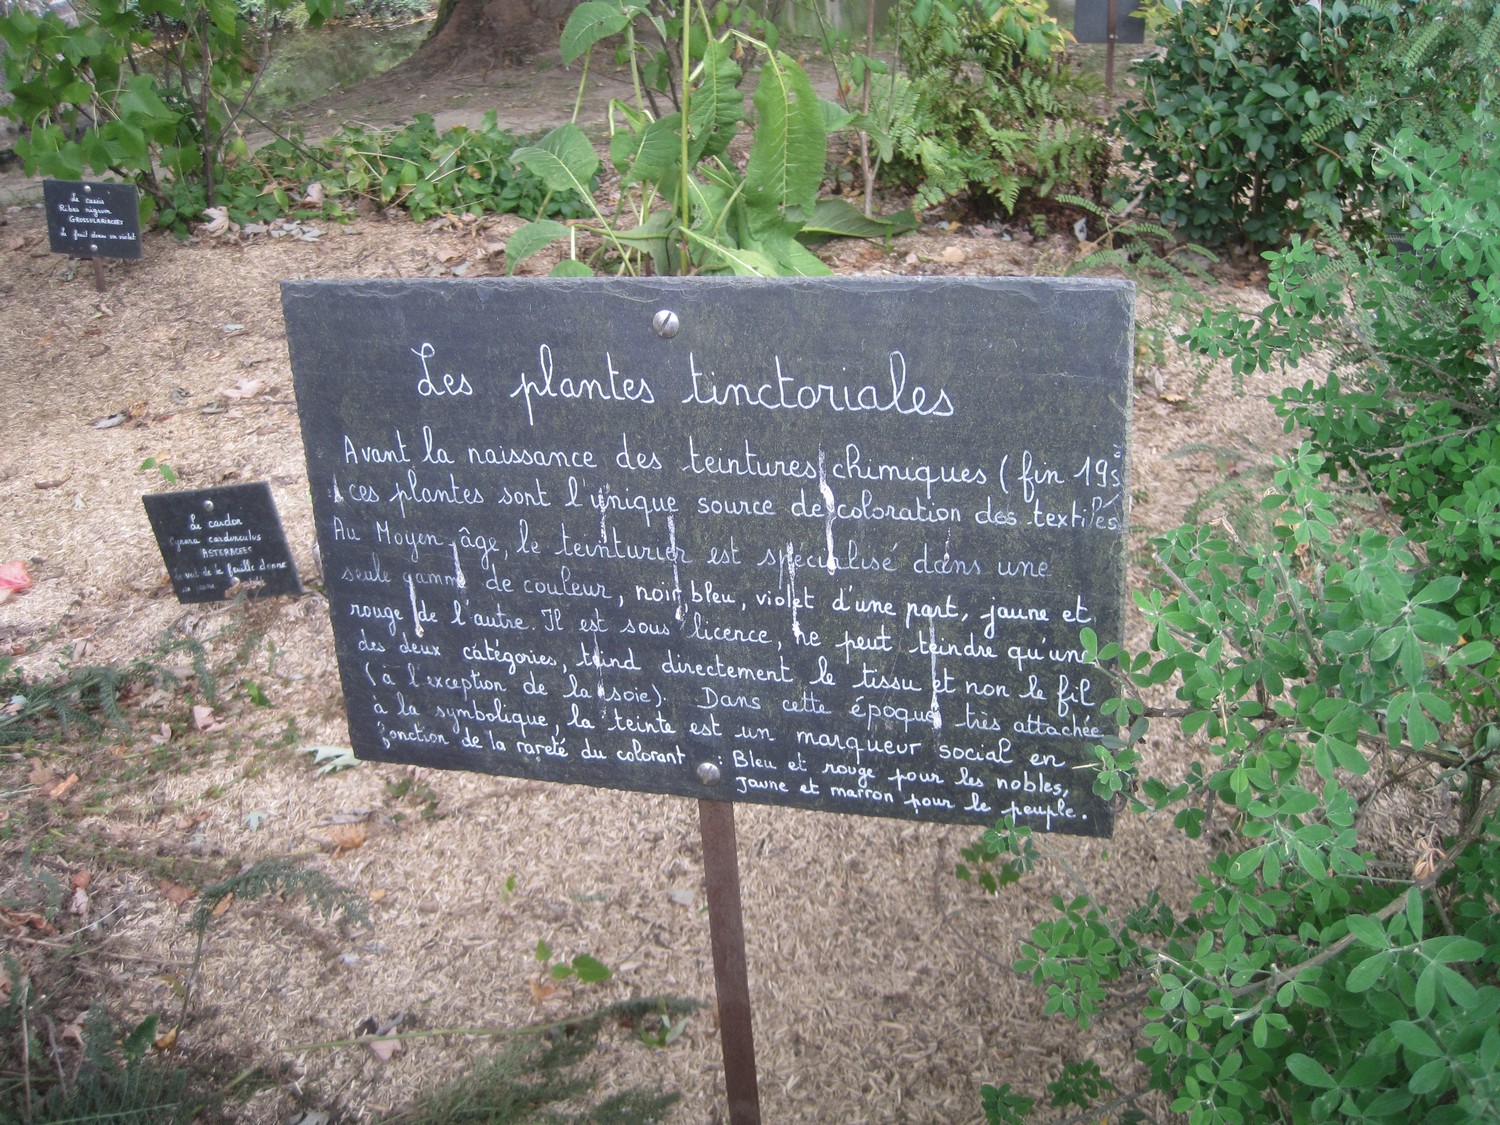 Le cassis
Ribes nigrum
GROSSULARIACEES
Le fruit donne un violet
Les plantes tinctoriales
Avant la naissance des teintures chimiques (fin 19
ces plantes sont l'unique source de coloration des textiles.
Au Moyen-âge, le teinturier est spécialisé dans une
seule gamme de couleur, noir, bleu, violet d'une part, jaune et
rouge de l'autre. Il est sous licence, ne peut teindre qu'une
des deux catégories, teind directement le tissu et non le fil
(à l'exception de la soie). Dans cette époque très attachée
à la symbolique, la teinte est un marqueur social en
fonction de la rareté du colorant : Bleu et rouge pour les nobles,
Jaune et marron pour le peuple.
Le cardon
Cynara cardunculus
ASTERACEES
Le vert de la feuille donne